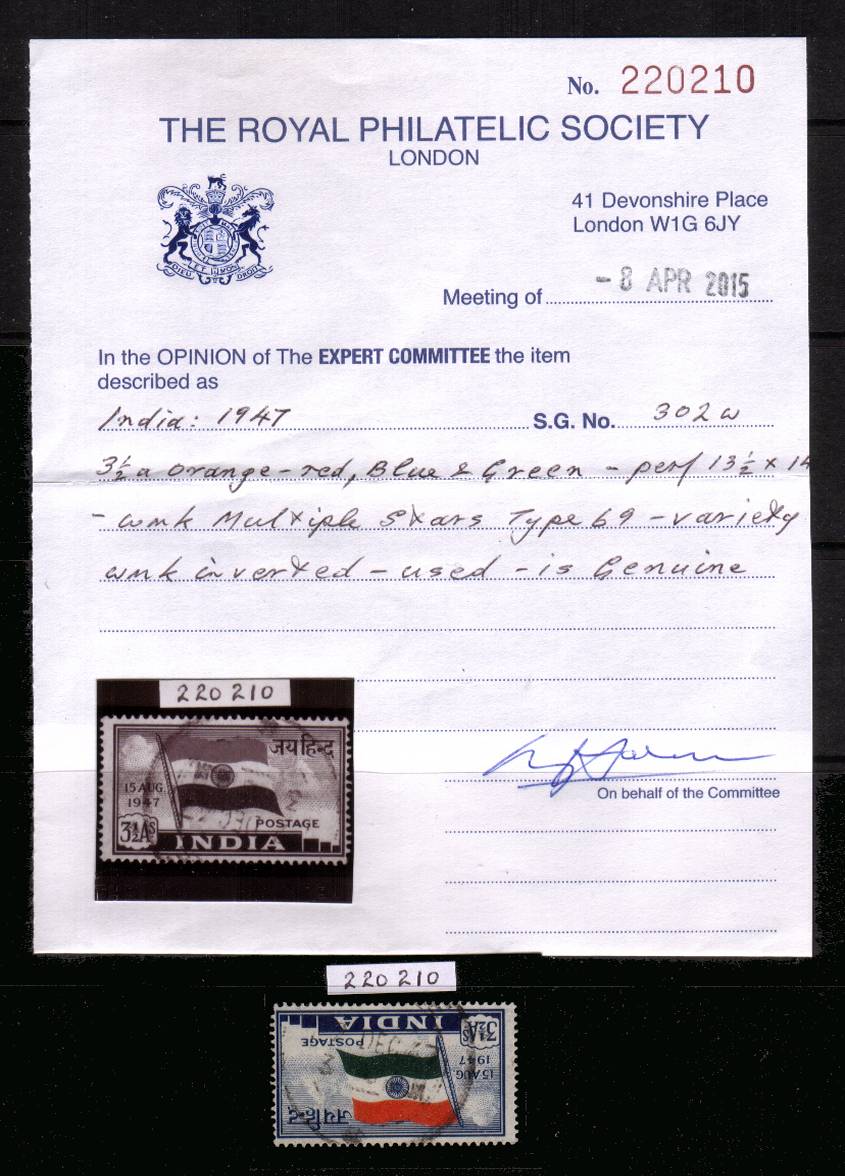 No. 220210
THE ROYAL PHILATELIC SOCIETY
LONDON
41 Devonshire Place
London W1G 6JY
DIEU ET MON DROIT
Meeting of - 8 APR 2015
In the OPINION of The EXPERT COMMITTEE the item
described as
India: 1947 S.G. No. 302w
3½a orange-red, Blue & Green - perf 13½ x 14
- wmk Multiple Stars Type 69 - variety
wmk inverted - used - is Genuine
220210
जय हिन्द
15 AUG.
1947
3½As
POSTAGE
INDIA
On behalf of the Committee
220210
INDIA
3½As
POSTAGE
DEC 47
1947
15 AUG
जय हिन्द